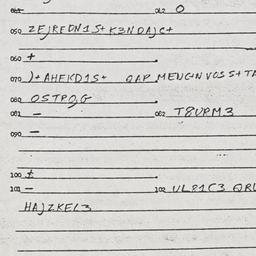 042 O
050 ZEJREDN1S+K3NDAJC+
060 +
070 )+AHEKD1S+ QAP MENGN VCSS+TA
080 OSTPQG
081 - 082 T8VPM3
090 -
100 ±
101 - 102 UL21C3 QRL
HAJZKEL3